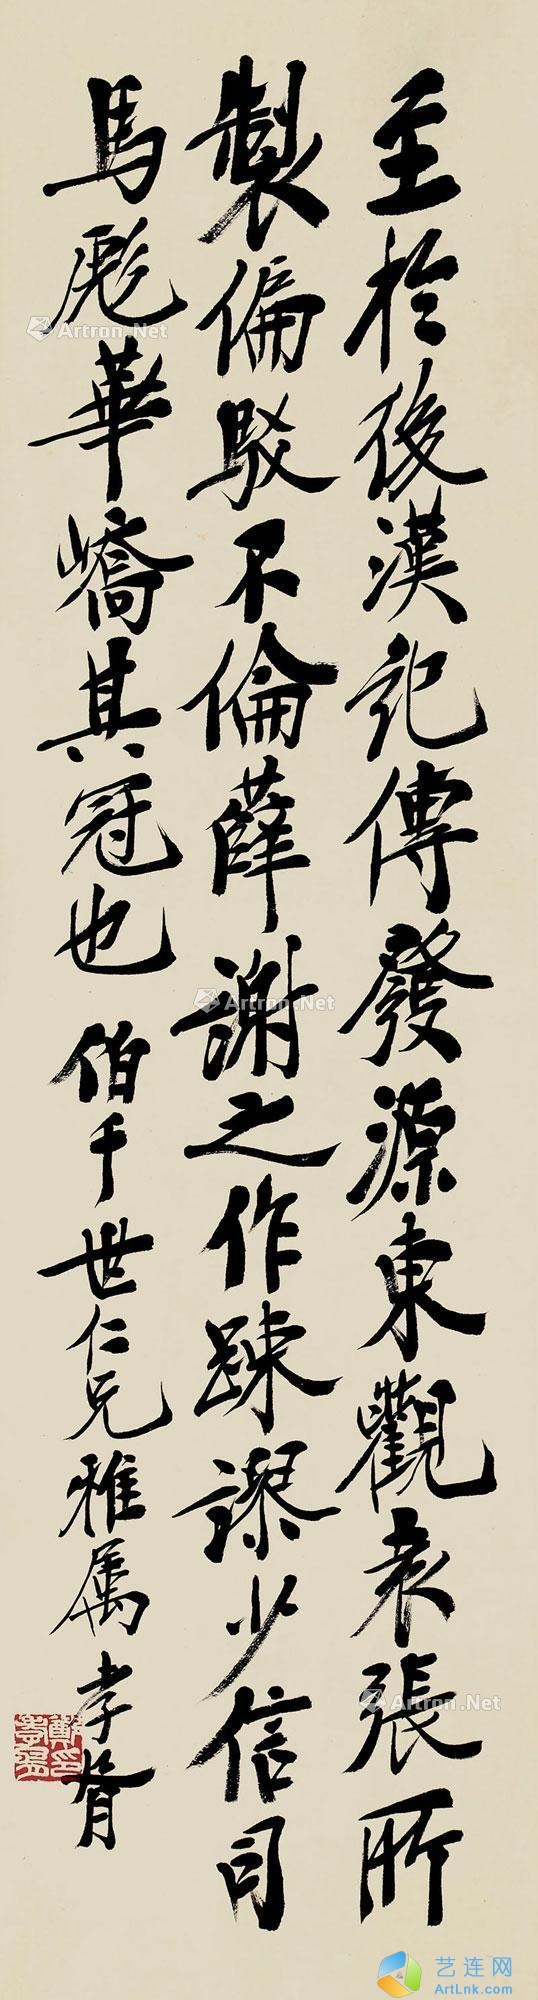 至於後漢記傳發源東觀袁張所
製偏駁不倫薛謝之作踈謬少信司
馬彪華嶠其冠也 伯千世仁兄雅属 孝胥
鄭孝胥印
Artron.Net
Artron.Net
Artron.Net
Artron.Net
艺连网
ArtLnk.com